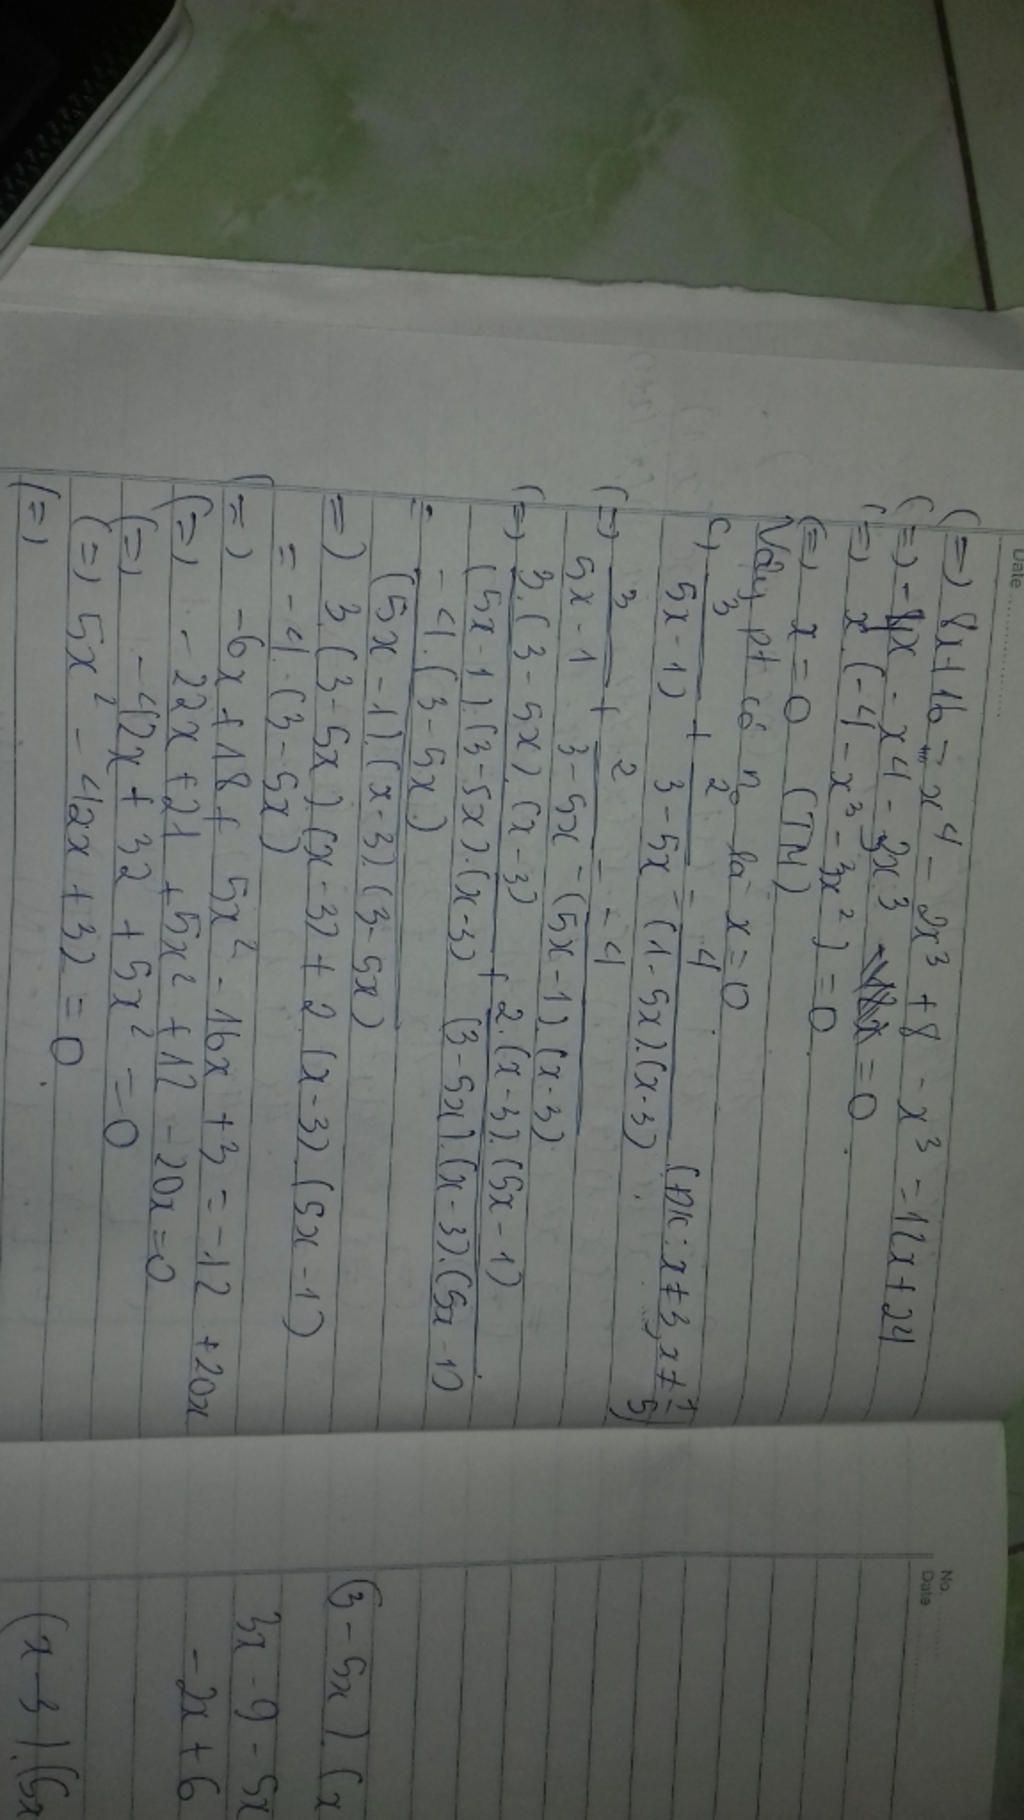 Date
(=) 8x+16 - x⁴ - 2x³ + 8 - x³ = 12x + 24
(=) -4x - x⁴ - 3x³ = 0
(=) x.(-4 - x³ - 3x²) = 0
(=) x = 0 (TM)
Vậy pt có n₀ là x = 0.
c, 3/(5x-1) + 2/(3-5x) = 4/((1-5x).(x-3)) (ĐK: x≠3, x≠1/5)
(=) 3/(5x-1) + 2/(3-5x) = -4/((5x-1).(x-3))
(=) 3.(3-5x).(x-3)/((5x-1).(3-5x).(x-3)) + 2.(x-3).(5x-1)/((3-5x).(x-3).(5x-1))
= -4.(3-5x)/((5x-1).(x-3).(3-5x))
=) 3.(3-5x).(x-3) + 2.(x-3).(5x-1)
= -4.(3-5x)
(=) -6x + 18 + 5x² - 16x + 3 = -12 + 20x
(=) -22x + 21 + 5x² + 12 - 20x = 0
(=) -42x + 32 + 5x² = 0
(=) 5x² - 42x + 32 = 0
(=)
No.
Date
(3-5x).(x
3x - 9 - 5x
-2x + 6
(x-3).(5x